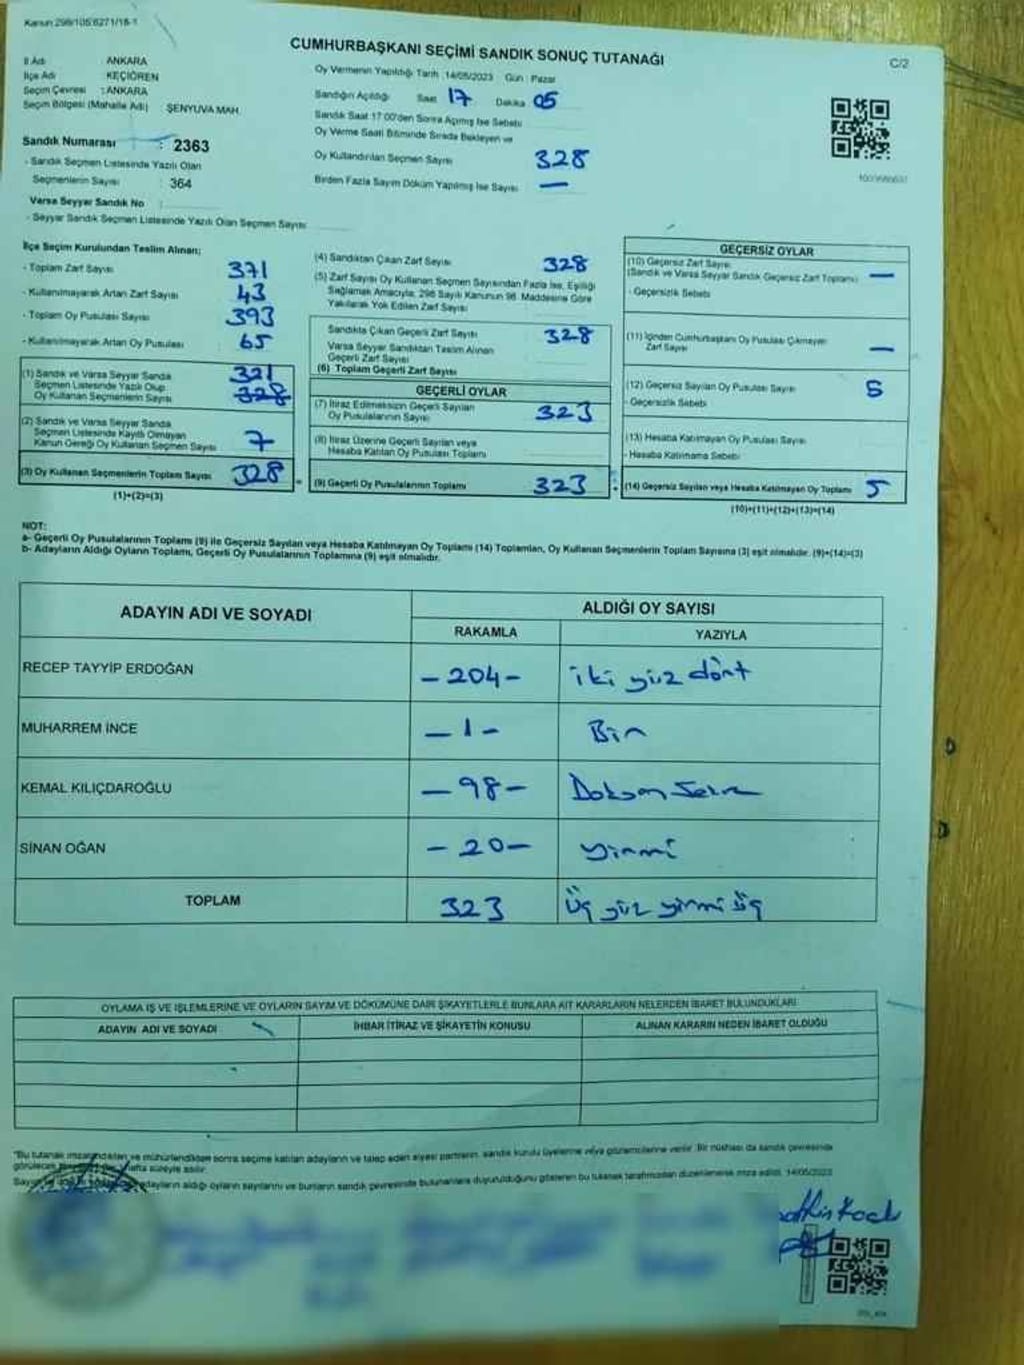 Kanun 298/105 6271/18-1
CUMHURBAŞKANI SEÇİMİ SANDIK SONUÇ TUTANAĞI
C/2
İl Adı : ANKARA
İlçe Adı : KEÇİÖREN
Seçim Çevresi : ANKARA
Seçim Bölgesi (Mahalle Adı) ŞENYUVA MAH.
Sandık Numarası : 2363
- Sandık Seçmen Listesinde Yazılı Olan
Seçmenlerin Sayısı : 364
Varsa Seyyar Sandık No :
- Seyyar Sandık Seçmen Listesinde Yazılı Olan Seçmen Sayısı
Oy Vermenin Yapıldığı Tarih : 14/05/2023 Gün : Pazar
Sandığın Açıldığı Saat 17 Dakika 05
Sandık Saat 17.00'den Sonra Açılmış İse Sebebi
Oy Verme Saati Bitiminde Sırada Bekleyen ve
Oy Kullandırılan Seçmen Sayısı 328
Birden Fazla Sayım Döküm Yapılmış İse Sayısı —
İlçe Seçim Kurulundan Teslim Alınan;
- Toplam Zarf Sayısı 371
- Kullanılmayarak Artan Zarf Sayısı 43
- Toplam Oy Pusulası Sayısı 393
- Kullanılmayarak Artan Oy Pusulası 65
(1) Sandık ve Varsa Seyyar Sandık 321
Seçmen Listesinde Yazılı Olup
Oy Kullanan Seçmenlerin Sayısı 328
(2) Sandık ve Varsa Seyyar Sandık
Seçmen Listesinde Kayıtlı Olmayan
Kanun Gereği Oy Kullanan Seçmen Sayısı 7
(3) Oy Kullanan Seçmenlerin Toplam Sayısı 328
(1)+(2)=(3)
(4) Sandıktan Çıkan Zarf Sayısı 328
(5) Zarf Sayısı Oy Kullanan Seçmen Sayısından Fazla İse, Eşitliği
Sağlamak Amacıyla, 298 Sayılı Kanunun 98. Maddesine Göre
Yakılarak Yok Edilen Zarf Sayısı
Sandıkta Çıkan Geçerli Zarf Sayısı 328
Varsa Seyyar Sandıktan Teslim Alınan
Geçerli Zarf Sayısı
(6) Toplam Geçerli Zarf Sayısı
GEÇERLİ OYLAR
(7) İtiraz Edilmeksizin Geçerli Sayılan
Oy Pusulalarının Sayısı 323
(8) İtiraz Üzerine Geçerli Sayılan veya
Hesaba Katılan Oy Pusulası Toplamı
(9) Geçerli Oy Pusulalarının Toplamı 323
GEÇERSİZ OYLAR
(10) Geçersiz Zarf Sayısı
(Sandık ve Varsa Seyyar Sandık Geçersiz Zarf Toplamı) —
- Geçersizlik Sebebi
(11) İçinden Cumhurbaşkanı Oy Pusulası Çıkmayan
Zarf Sayısı —
(12) Geçersiz Sayılan Oy Pusulası Sayısı 5
- Geçersizlik Sebebi
(13) Hesaba Katılmayan Oy Pusulası Sayısı
- Hesaba Katılmama Sebebi
(14) Geçersiz Sayılan veya Hesaba Katılmayan Oy Toplamı 5
(10)+(11)+(12)+(13)=(14)
NOT:
a- Geçerli Oy Pusulalarının Toplamı (9) ile Geçersiz Sayılan veya Hesaba Katılmayan Oy Toplamı (14) Toplamları, Oy Kullanan Seçmenlerin Toplam Sayısına (3) eşit olmalıdır. (9)+(14)=(3)
b- Adayların Aldığı Oyların Toplamı, Geçerli Oy Pusulalarının Toplamına (9) eşit olmalıdır.
ADAYIN ADI VE SOYADI
ALDIĞI OY SAYISI
RAKAMLA YAZIYLA
RECEP TAYYİP ERDOĞAN -204- iki yüz dört
MUHARREM İNCE -1- Bir
KEMAL KILIÇDAROĞLU -98- Doksan Sekiz
SİNAN OĞAN -20- yirmi
TOPLAM 323 Üç yüz yirmi üç
OYLAMA İŞ VE İŞLEMLERİNE VE OYLARIN SAYIM VE DÖKÜMÜNE DAİR ŞİKAYETLERLE BUNLARA AİT KARARLARIN NELERDEN İBARET BULUNDUKLARI
ADAYIN ADI VE SOYADI İHBAR İTİRAZ VE ŞİKAYETİN KONUSU ALINAN KARARIN NEDEN İBARET OLDUĞU
"Bu tutanak imzalandıktan ve mühürlendikten sonra seçime katılan adayların ve talep eden siyasi partilerin, sandık kurulu üyelerine veya gözlemcilerine verilir. Bir nüshası da sandık çevresinde
görülecek hafta süreyle asılır.
adayların aldığı oyların sayılarını ve bunların sandık çevresinde bulunanlara duyurulduğunu gösteren bu tutanak tarafımızdan düzenlenerek imza edildi. 14/05/2023